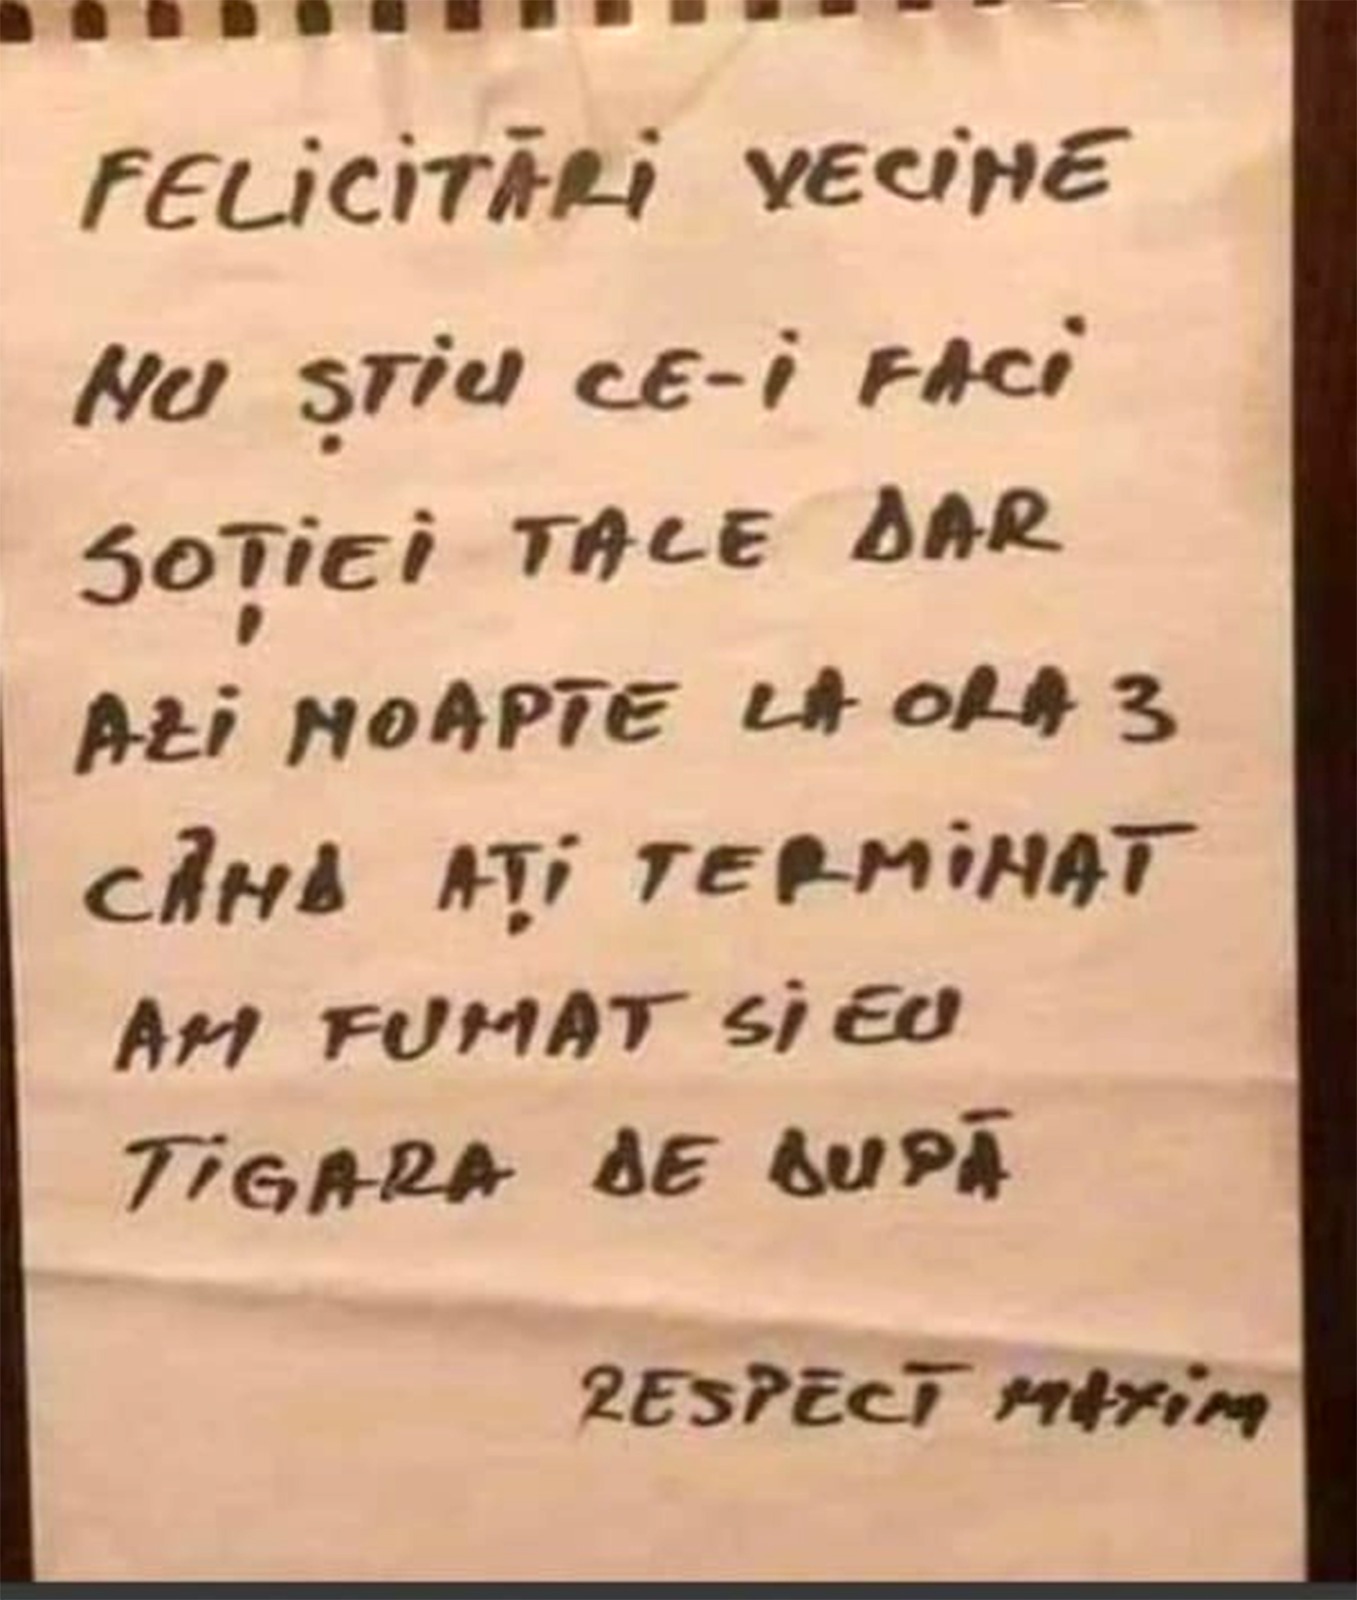 FELiCiTĂRi VECiNE
NU ȘTiU CE-i FACi
SOȚiEi TALE DAR
AZi NOAPTE LA ORA 3
CÂND AȚi TERMiNAT
AM FUMAT Si EU
TiGARA DE DUPĂ
RESPECT MAXiM